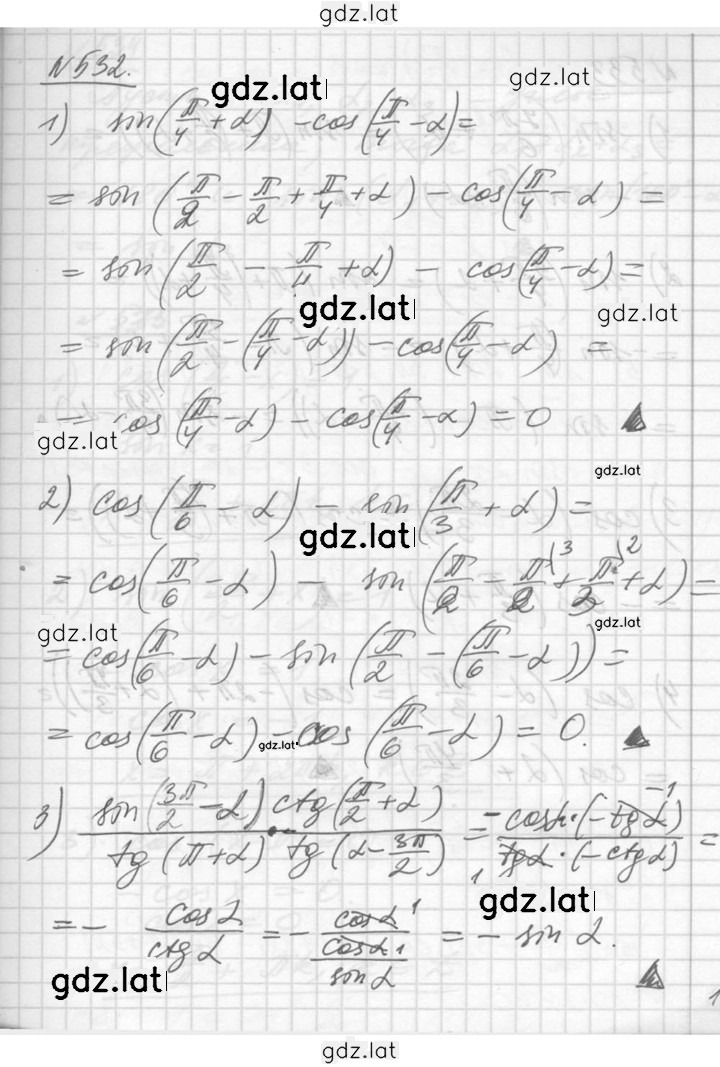 gdz.lat
N 532.
gdz.lat gdz.lat
1) sin(π/4 + α) - cos(π/4 - α) =
= sin(π/2 - π/2 + π/4 + α) - cos(π/4 - α) =
= sin(π/2 - π/4 + α) - cos(π/4 - α) =
gdz.lat gdz.lat
= sin(π/2 - (π/4 - α)) - cos(π/4 - α) =
= cos(π/4 - α) - cos(π/4 - α) = 0
gdz.lat
gdz.lat
2) cos(π/6 - α) - sin(π/3 + α) =
gdz.lat
= cos(π/6 - α) - sin(π/2 - π/2 \3 + π/3 \2 + α) =
gdz.lat gdz.lat
= cos(π/6 - α) - sin(π/2 - (π/6 - α)) =
= cos(π/6 - α) - cos(π/6 - α) = 0.
gdz.lat
3) sin(3π/2 - α) ctg(π/2 + α) / tg(π + α) · tg(α - 3π/2) = -cosα · (-tgα) -1 / 1 tgα · (-ctgα) =
gdz.lat
= - cosα / ctgα = - cosα 1 / (cosα 1 / sinα) = - sin α.
gdz.lat
1
gdz.lat